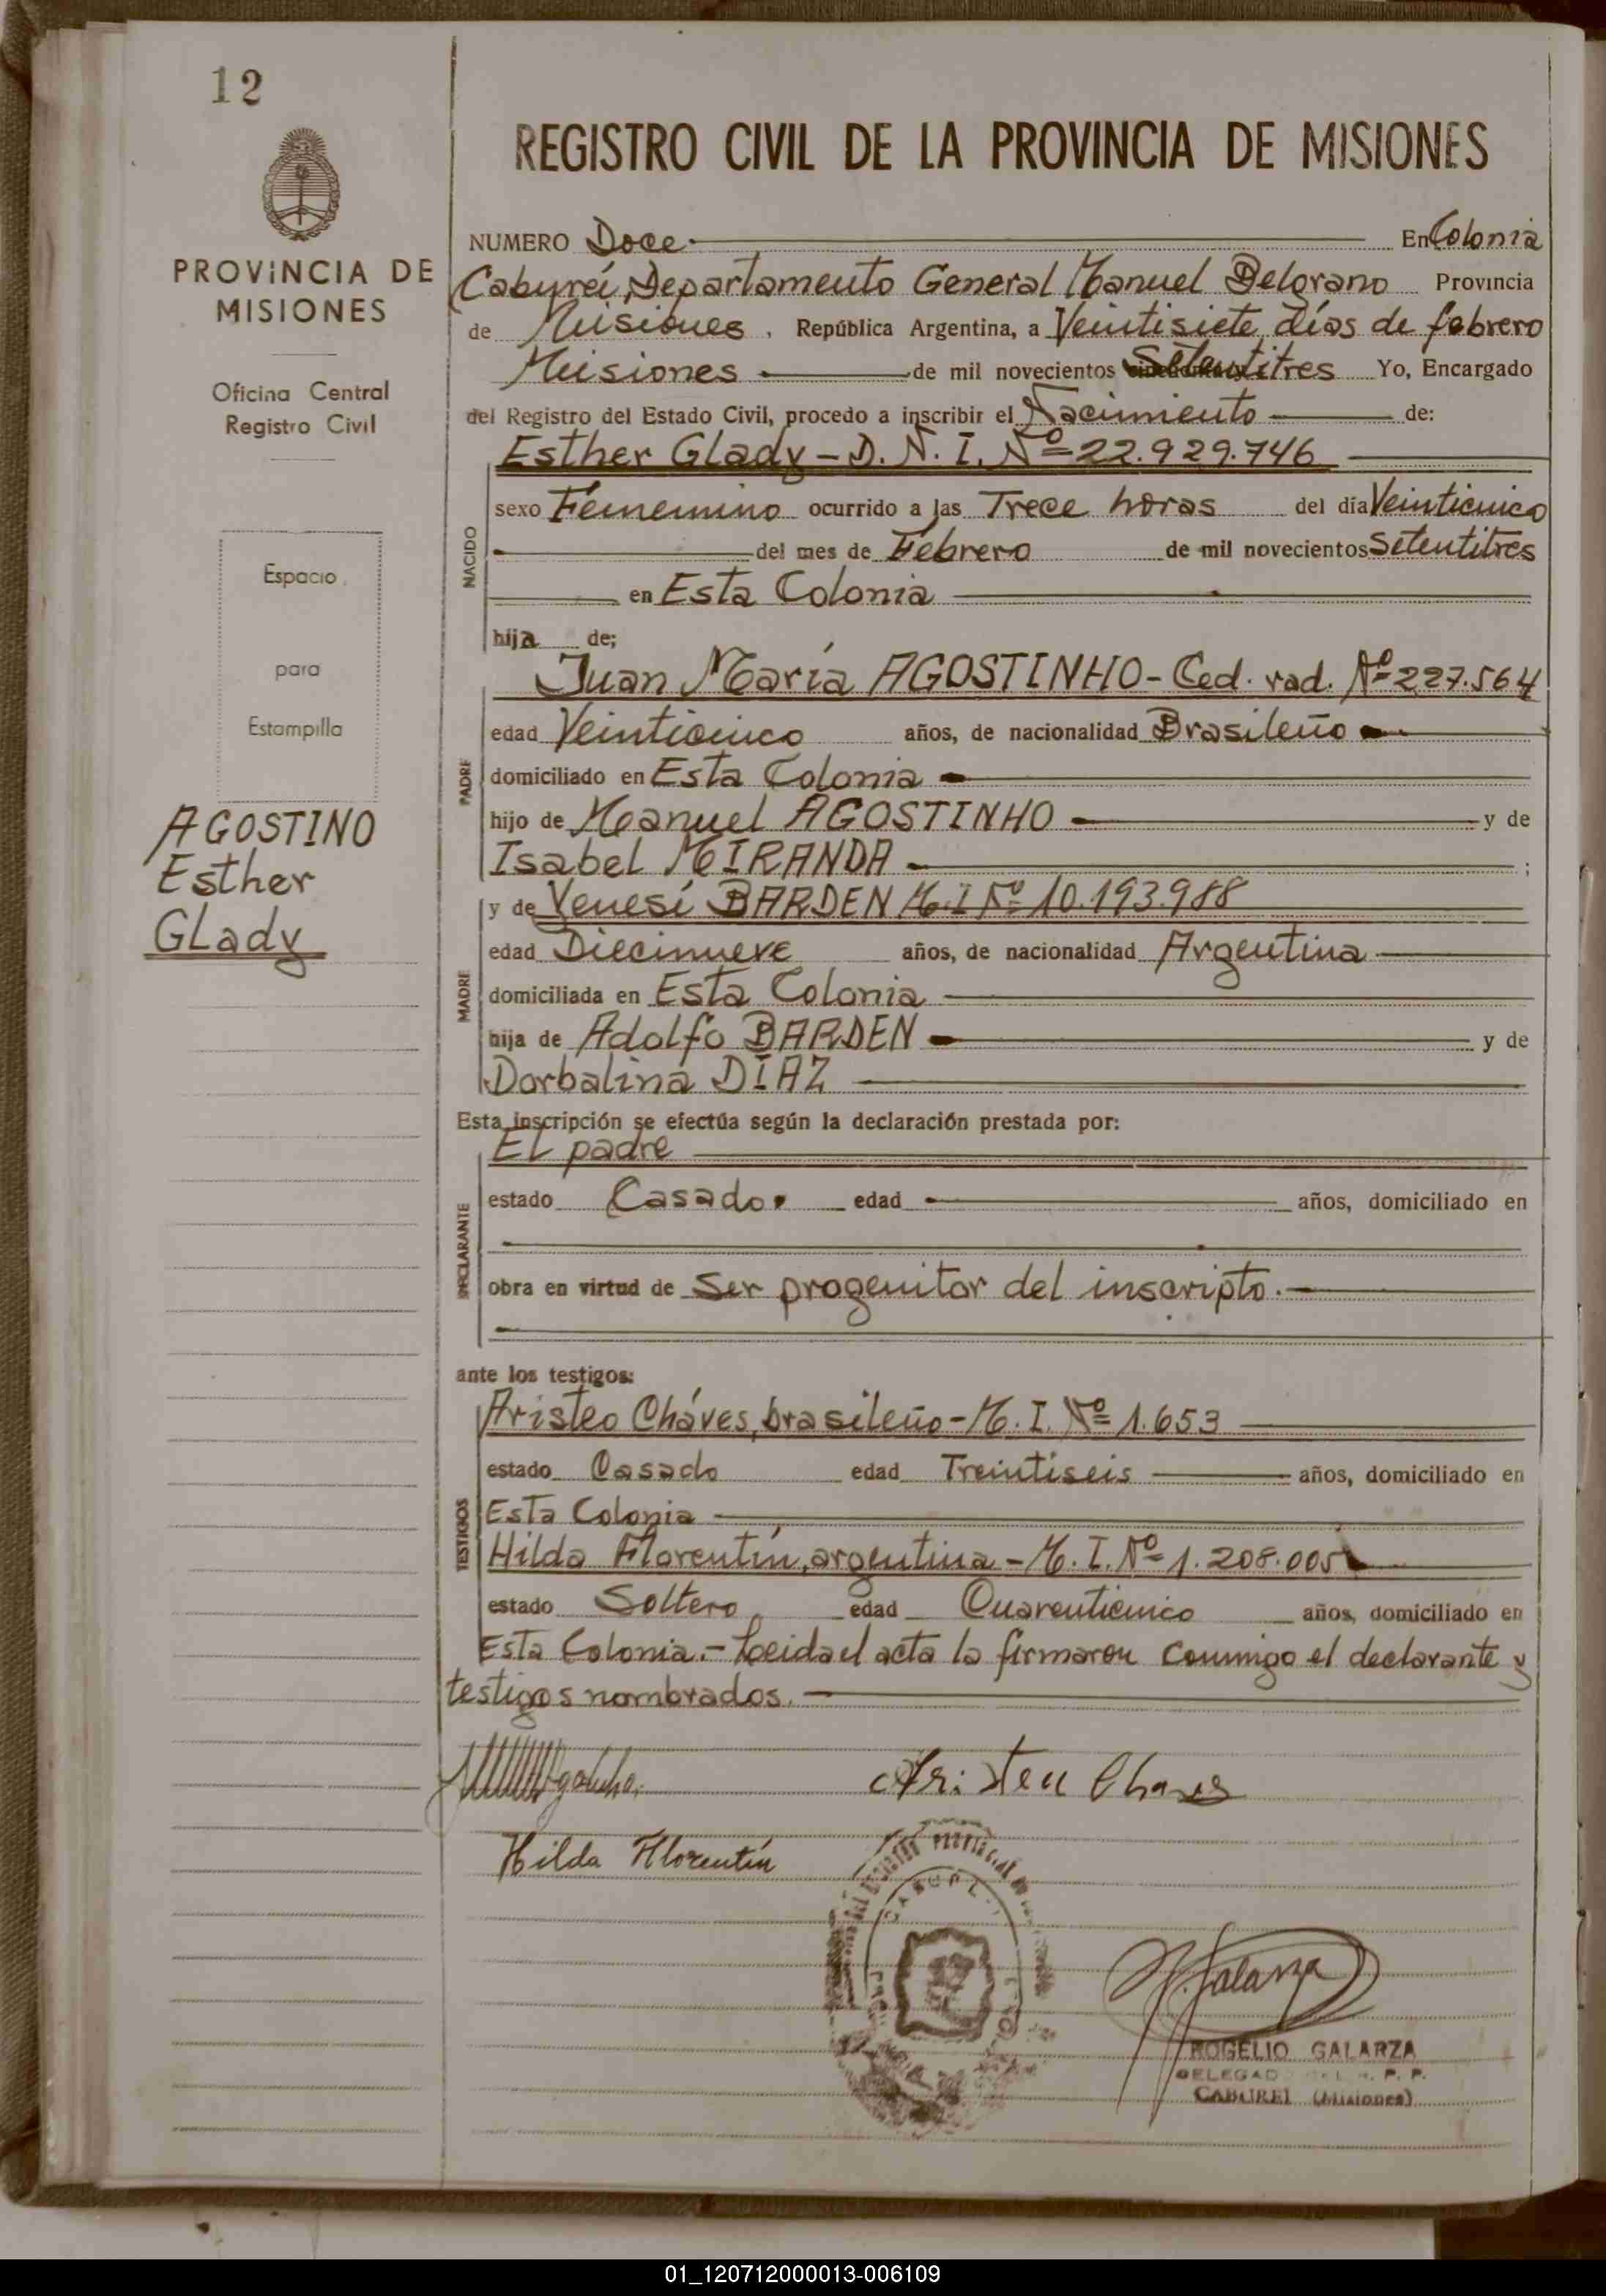 12
PROVINCIA DE
MISIONES
Oficina Central
Registro Civil
Espacio
para
Estampilla
AGOSTINO
Esther
Glady
REGISTRO CIVIL DE LA PROVINCIA DE MISIONES
NUMERO Doce En Colonia
Caburei, Departamento General Manuel Belgrano Provincia
de Misiones, República Argentina, a Veintisiete días de febrero
Misiones de mil novecientos Setentitres Yo, Encargado
del Registro del Estado Civil, procedo a inscribir el Nacimiento de:
Esther Glady - D. N. I. Nº 22.929.746
NACIDO
sexo Femenino ocurrido a las Trece horas del día Veinticinco
del mes de Febrero de mil novecientos Setentitres
en Esta Colonia
hija de;
Juan María AGOSTINHO - Ced. rad. Nº 227.564
PADRE
edad Veinticinco años, de nacionalidad Brasileño
domiciliado en Esta Colonia
hijo de Manuel AGOSTINHO y de
Isabel MIRANDA ;
y de Venesí BARDEN M.I Nº 10.193.988
MADRE
edad Diecinueve años, de nacionalidad Argentina
domiciliada en Esta Colonia
hija de Adolfo BARDEN y de
Dorbalina DÍAZ
Esta inscripción se efectúa según la declaración prestada por:
El padre
DECLARANTE
estado Casado. edad años, domiciliado en
obra en virtud de Ser progenitor del inscripto.
ante los testigos:
Aristeo Cháves, brasileño - M. I. Nº 1.653
TESTIGOS
estado Casado edad Treintiseis años, domiciliado en
Esta Colonia
Hilda Florentín, argentina - M. I. Nº 1.208.005
estado Soltero edad Cuarenticinco años, domiciliado en
Esta Colonia. - Leida el acta la firmaron conmigo el declarante y
testigos nombrados.
Aristeu Chaves
Hilda Florentín
R. Galarza
ROGELIO GALARZA
DELEGADO R. P. P.
CABUREI (Misiones)
01_120712000013-006109